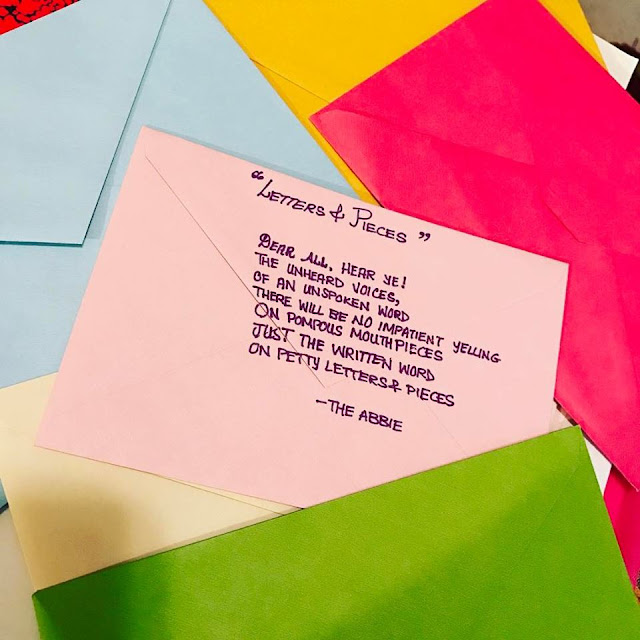 "LETTERS & PIECES"
DEAR ALL, HEAR YE!
THE UNHEARD VOICES,
OF AN UNSPOKEN WORD
THERE WILL BE NO IMPATIENT YELLING
ON POMPOUS MOUTHPIECES
JUST THE WRITTEN WORD
ON PETTY LETTERS & PIECES
-THE ABBIE